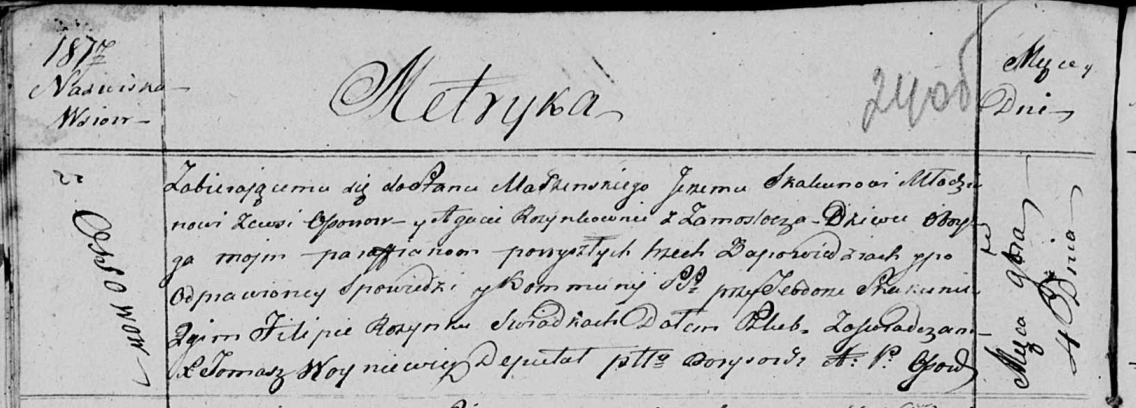 1817
Nazwiska
Wsiow
Metryka
24об
Męcy
Dni
Osowow
Zabierającemu się do Stanu Małżenskiego Jeremu Skakunowi Młodzia
nowi zewsi Osowow y Agacie Rozynkownie z Zamostocza Dziewce oboy
ga moim paraffianom powyszłych trzech Zapowiedziach y po
Odprawioney Spowiedzi y Kommunij przy Teodorze Skakunie
Filipie Rozynku Swiadkach Dałem Szlub Zaswiadczam
X Tomasz Woyniewicz Deputat
Męca 9bra
4 Dnia